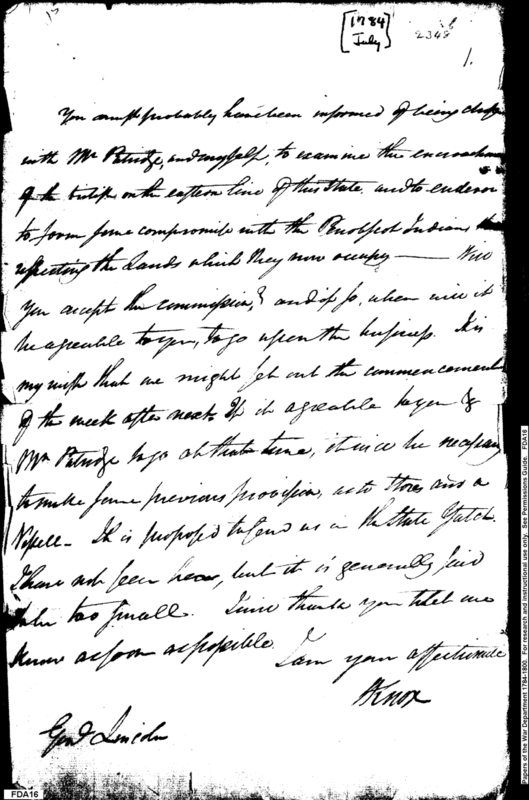 [1784
July]
2348
1.
You must probably have been informed of being chose
with Mr Patridge, and myself, to examine the encroachm
of the british on the eastern line of this state. and to endevor
to form some compromise with the Penobscot Indians
respecting the Lands which they now occupy — Will
you accept the commission,? and if so, when will it
be agreeable to you, to go upon the business. It is
my wish that we might set out the commencement
of the week after next. If it agreable to you &
Mr Patridge to go at that time, it will be necessary
to make some previous provision, as to stores and a
Vessell. It is proposed to send us in the State Yatch.
I have not seen her, but it is generally said
to be too small. I will thank you to let me
know as soon as possible.
I am your affectionate
HKnox
Genl Lincoln
FDA16
Papers of the War Department 1784-1800. For research and instructional use only. See Permissions Guide. FDA16